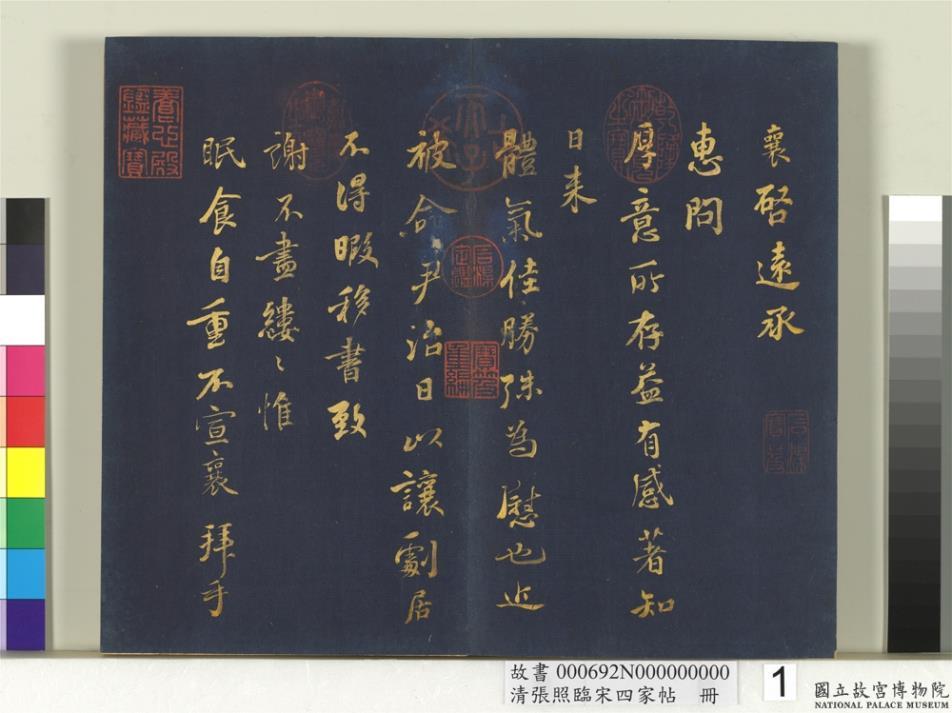 襄啓遠承
惠問
厚意所存益有感著知
日来
體氣佳勝殊為慰也近
被命尹治日以讓劇居
不得暇移書致
謝不盡縷〻惟
眠食自重不宣襄拜手
養心殿
鑑藏寶
故書 000692N000000000
清張照臨宋四家帖 冊
1
國立故宮博物院
NATIONAL PALACE MUSEUM